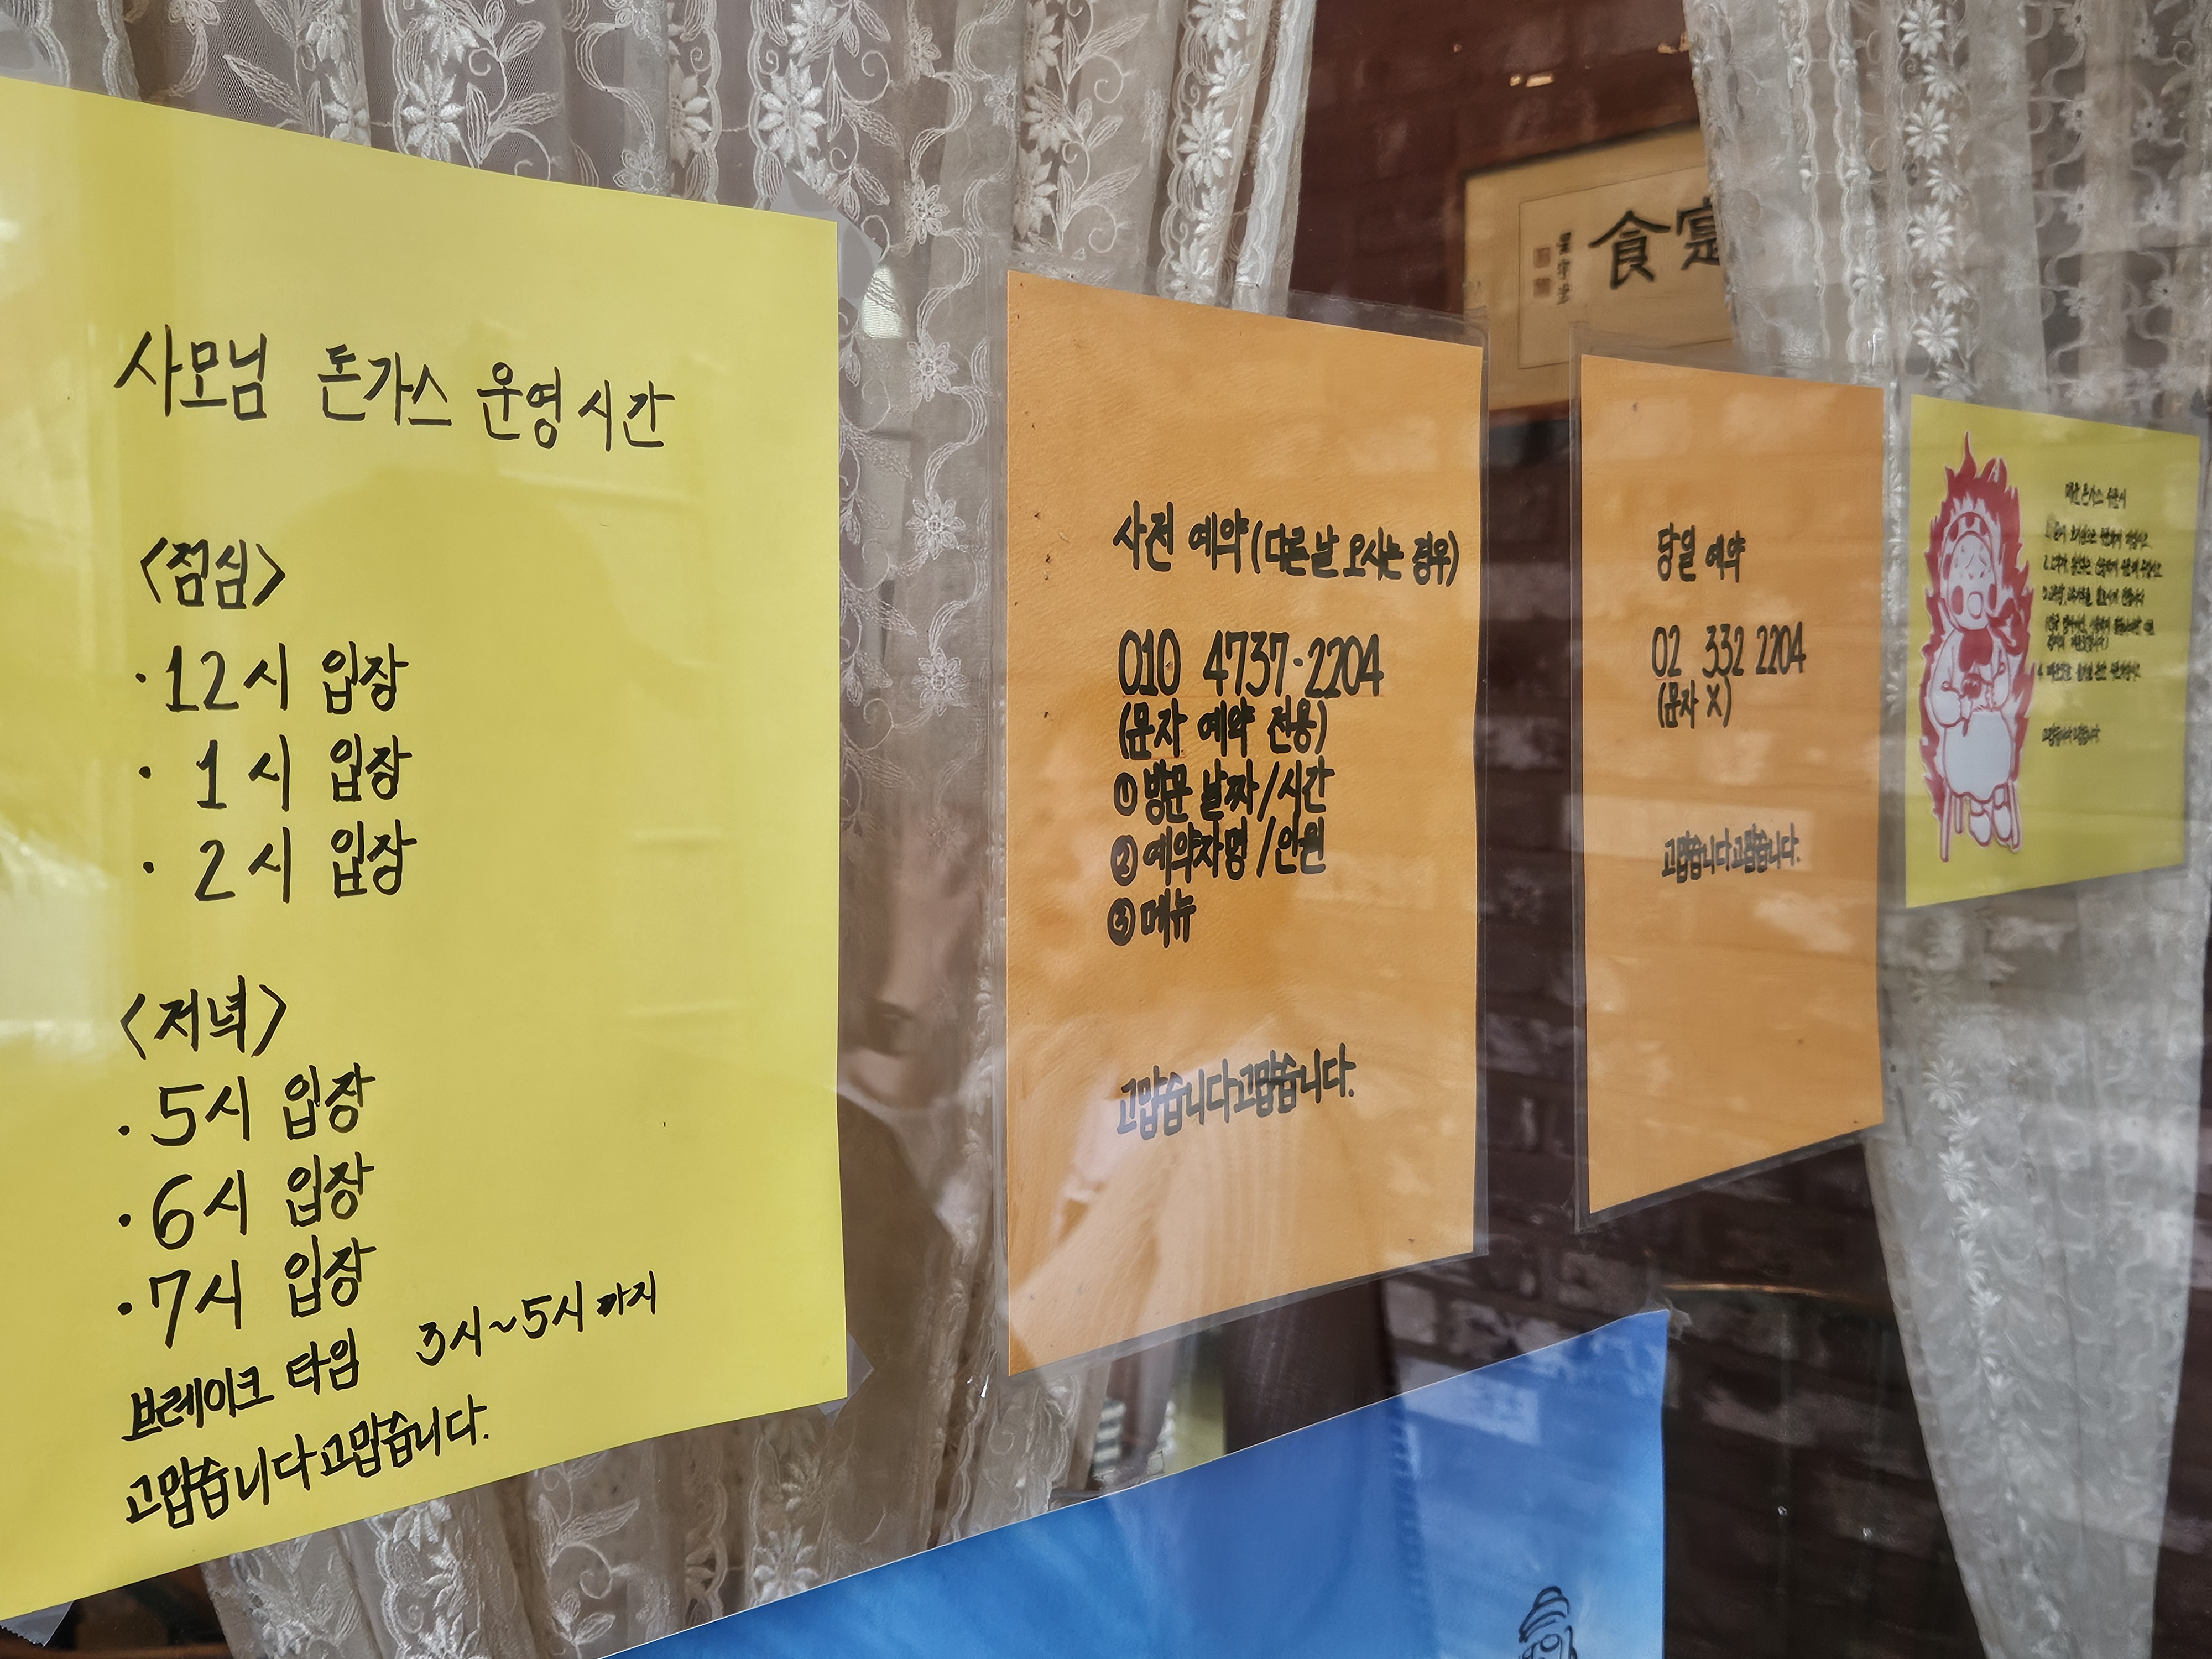 사모님 돈가스 운영시간
<점심>
· 12시 입장
· 1시 입장
· 2시 입장
<저녁>
· 5시 입장
· 6시 입장
· 7시 입장
브레이크 타임 3시~5시까지
고맙습니다고맙습니다.
사전 예약(다른날 오시는 경우)
010 4737·2204
(문자 예약 전용)
① 방문 날짜/시간
② 예약자명/인원
③ 메뉴
고맙습니다고맙습니다.
당일 예약
02 332 2204
(문자 X)
고맙습니다고맙습니다.
食
매운 돈가스